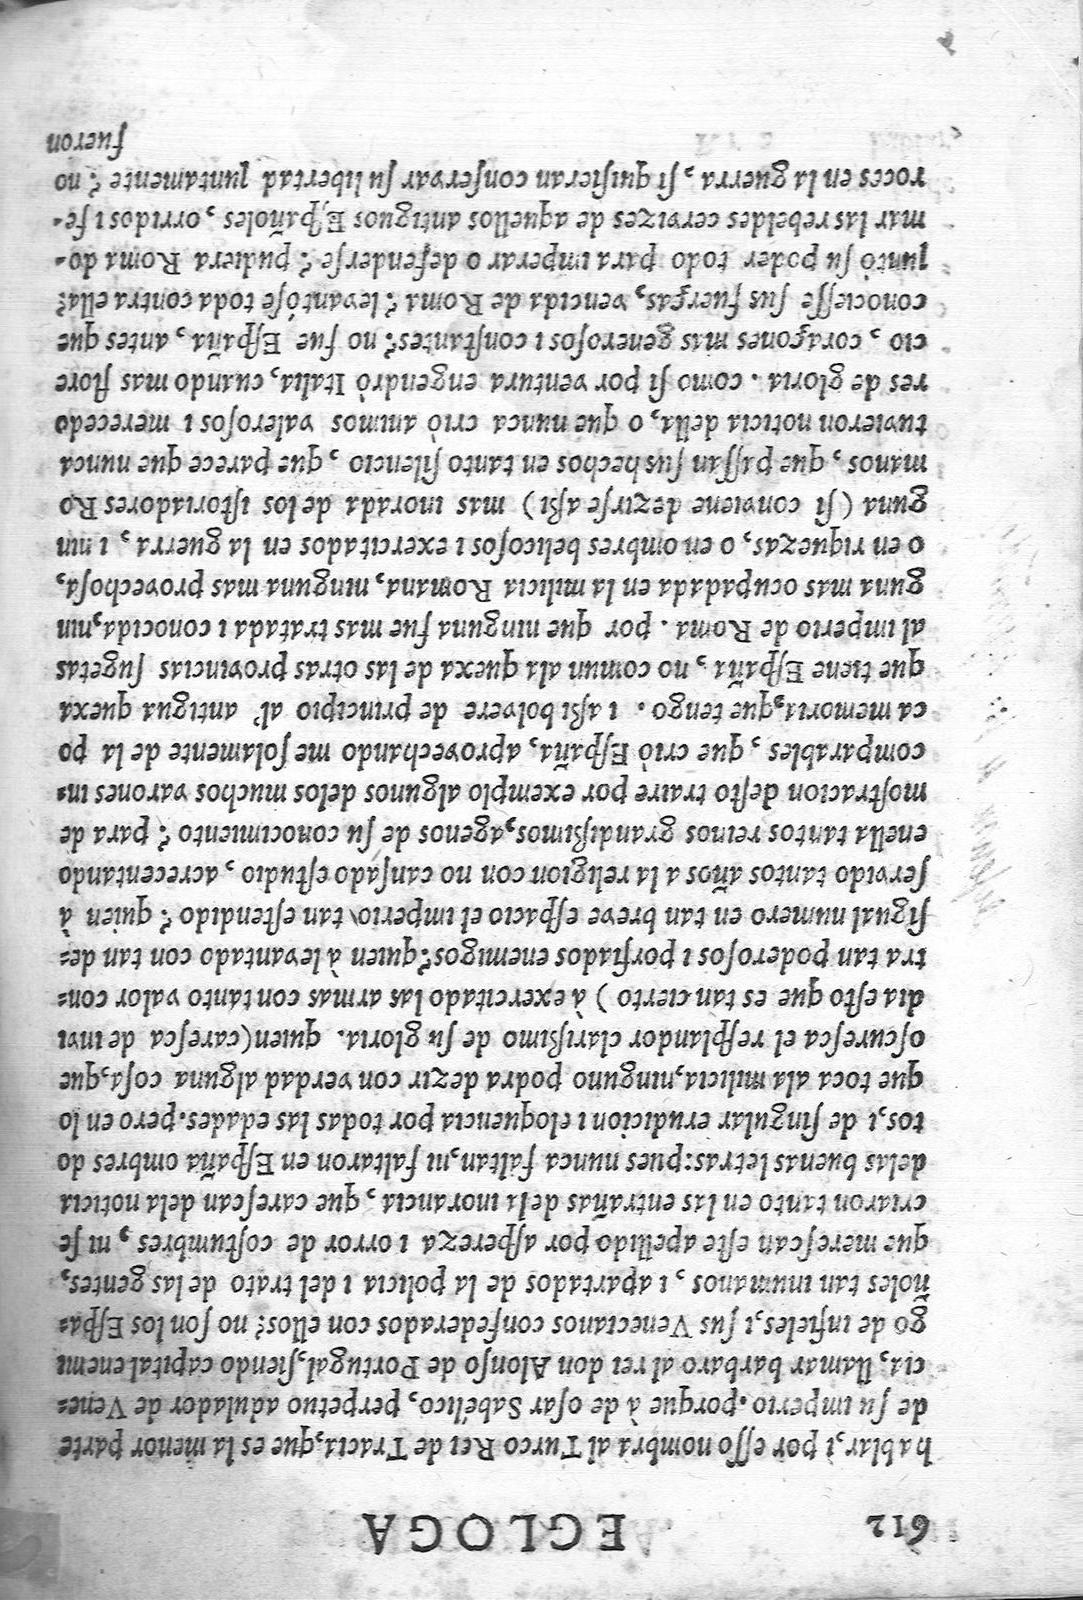 612 EGLOGA
hablar, i por esso nombra al Turco Rei de Tracia, que es la menor parte
de su imperio. porque à de osar Sabélico, perpetuo adulador de Vene=
cia, llamar barbaro al rei don Alonso de Portugal, siendo capital enemi
go de infieles, i sus Venecianos confederados con ellos? no son los Espa=
ñoles tan inumanos, i apartados de la policia i del trato de las gentes,
que merescan este apellido por aspereza i orror de costumbres, ni se
criaron tanto en las entrañas dela inorancia, que carescan dela noticia
delas buenas letras: pues nunca faltan, ni faltaron en España ombres do
tos, i de singular erudicion i eloquencia por todas las edades. pero en lo
que toca ala milicia, ninguno podra dezir con verdad alguna cosa, que
oscuresca el resplandor clarissimo de su gloria. quien (caresca de invi
dia esto que es tan cierto) à exercitado las armas con tanto valor con=
tra tan poderosos i porfiados enemigos? quien à levantado con tan de=
sigual numero en tan breve espacio el imperio tan estendido? quien à
servido tantos años a la religion con no cansado estudio, acrecentando
enella tantos reinos grandissimos, agenos de su conocimiento? para de
mostracion desto traire por exemplo algunos delos muchos varones in=
comparables, que criò España, aprovechando me solamente de la po
ca memoria, que tengo. i assi bolvere de principio al antigua quexa
que tiene España, no comun ala quexa de las otras provincias sugetas
al imperio de Roma. por que ninguna fue mas tratada i conocida, nin
guna mas ocupadada en la milicia Romana, ninguna mas provechosa,
o en riquezas, o en ombres belicosos i exercitados en la guerra, i nin
guna (si conviene dezirse assi) mas inorada de los istoriadores Ro
manos, que passan sus hechos en tanto silencio, que parece que nunca
tuvieron noticia della, o que nunca criò animos valerosos i merecedo
res de gloria. como si por ventura engendrò Italia, cuando mas flore
cio, coraçones mas generosos i constantes? no fue España, antes que
conociesse sus fuerças, vencida de Roma? levantóse toda contra ella?
juntò su poder todo para imperar o defenderse? pudiera Roma do=
mar las rebeldes cervizes de aquellos antiguos Españoles, orridos i fe=
roces en la guerra, si quisieran conservar su libertad juntamente? no
fueron